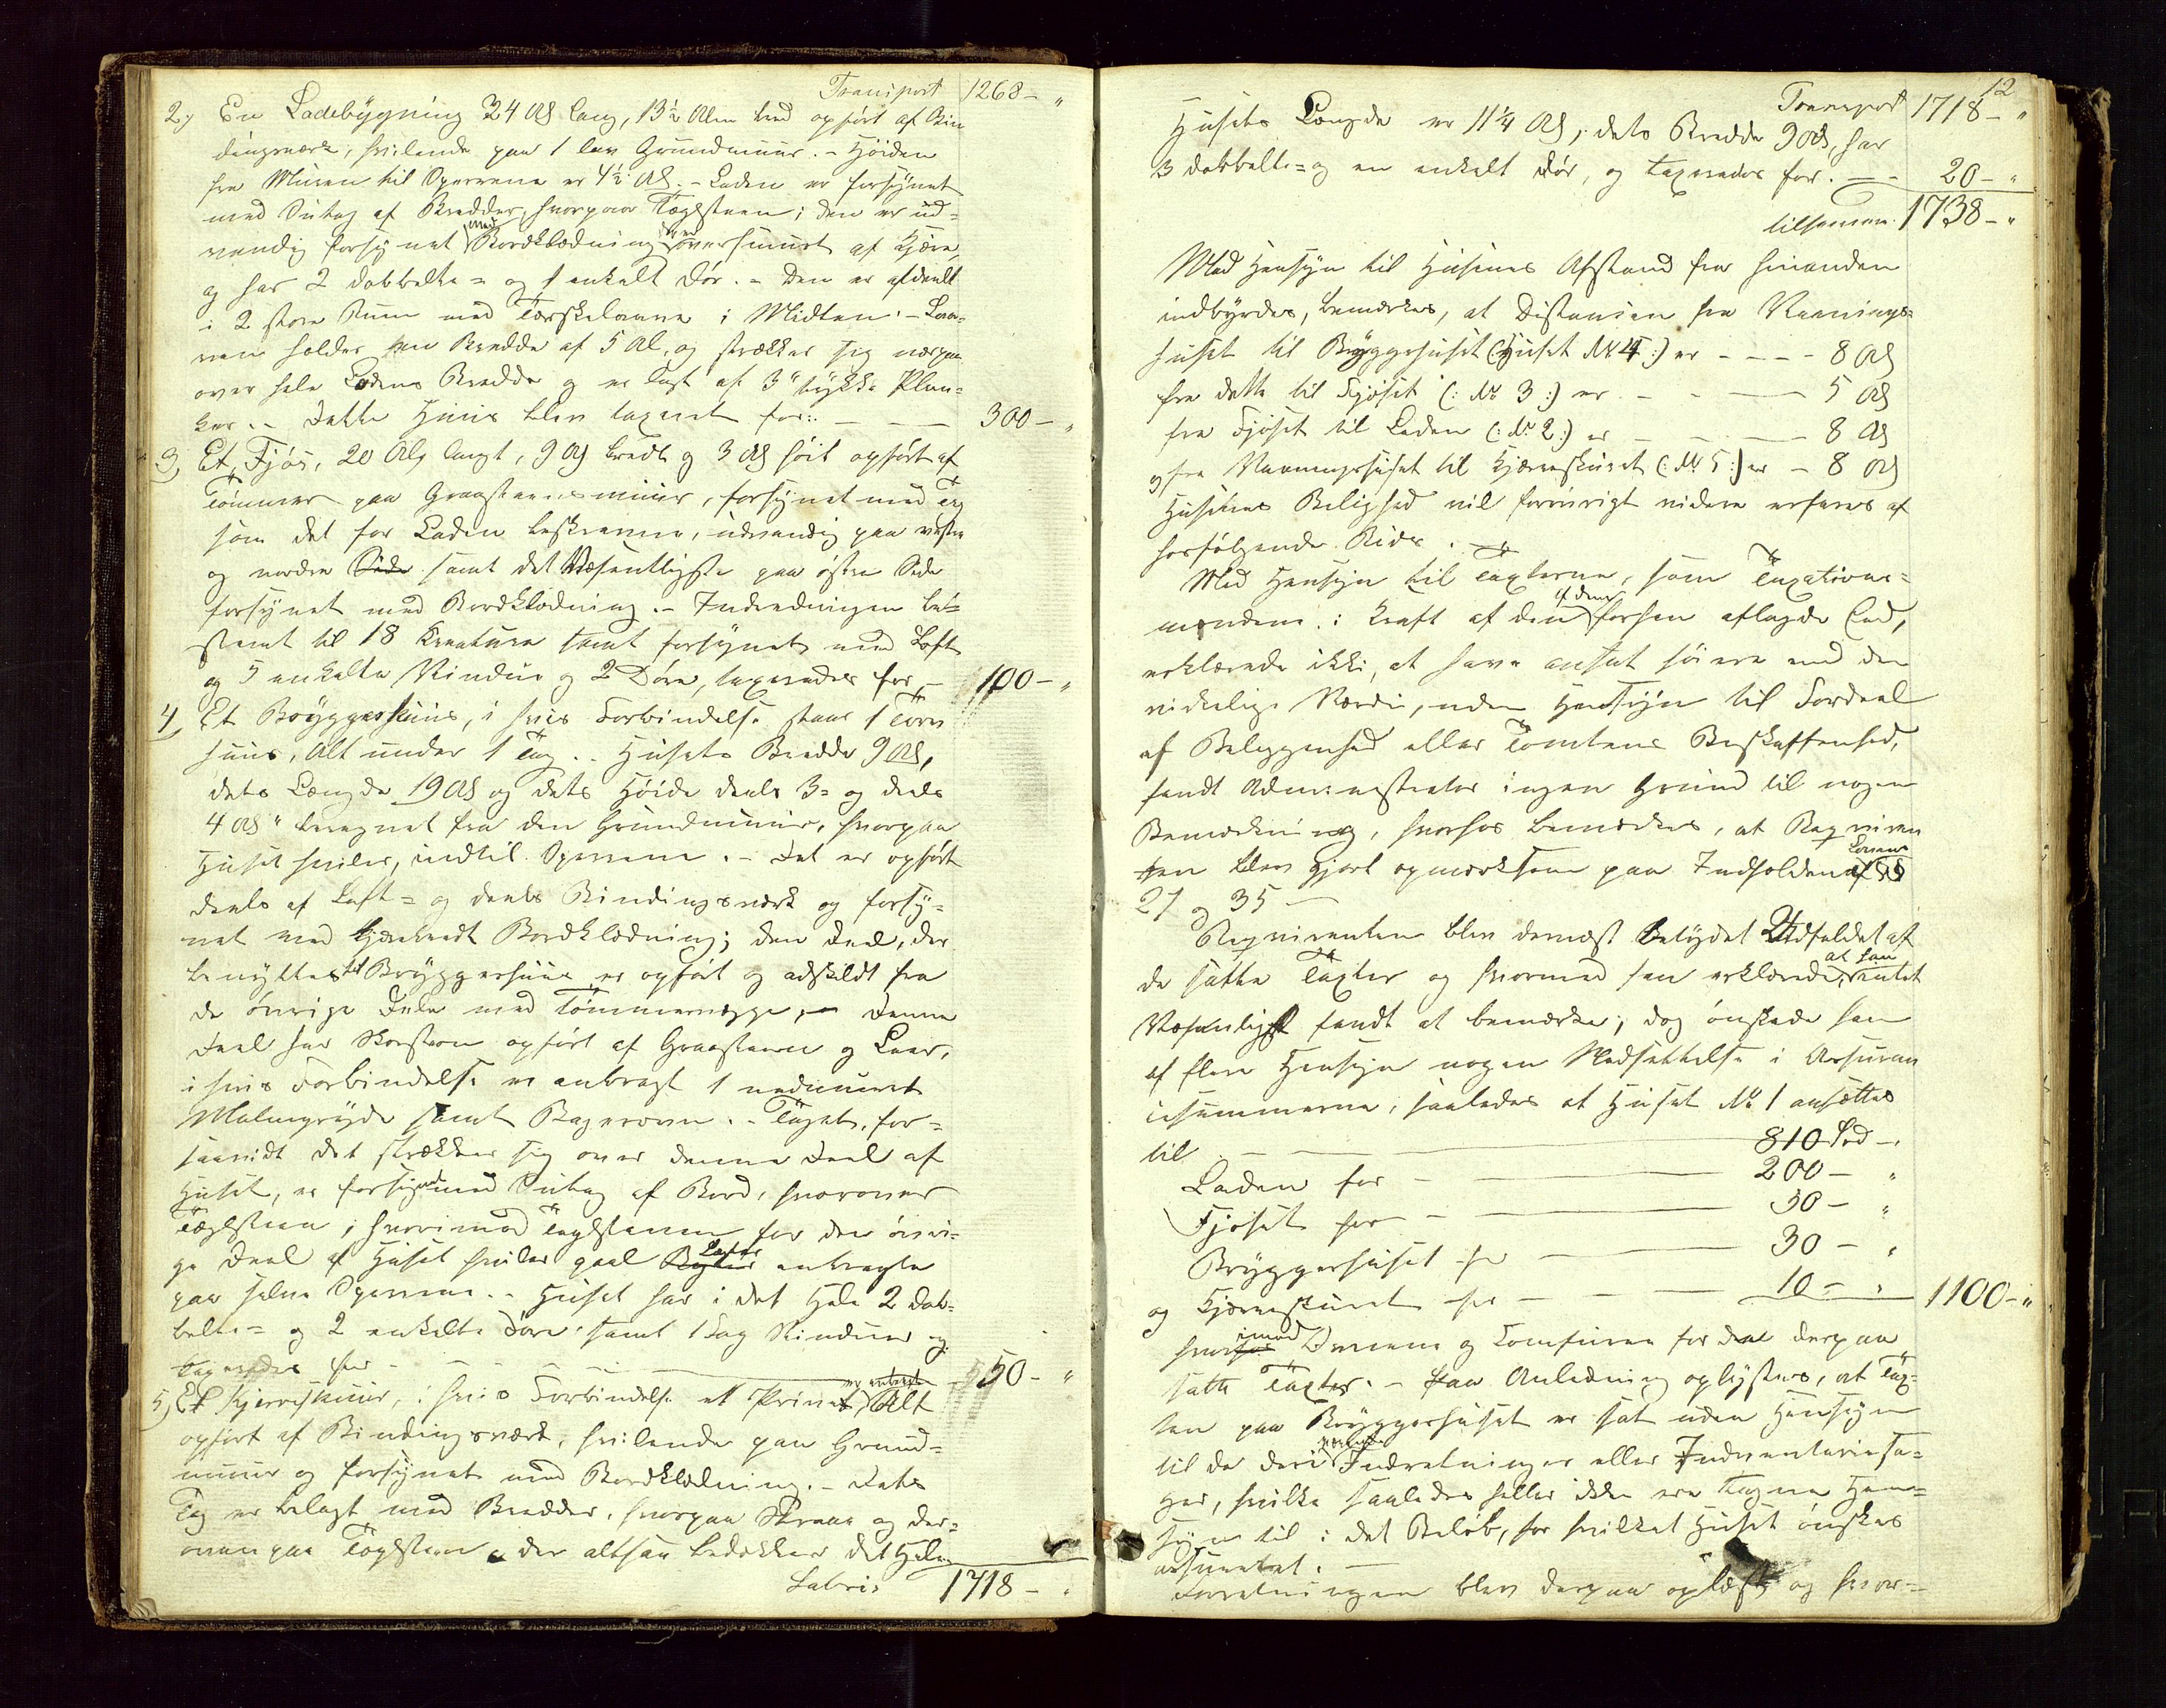 Transport 1268 - "
2, En Ladebÿgning 34 Al lang, 13½ Alen bred opført af Bin
dingsværk, hvilende paa 1 lav Grundmuur. - Høiden
fra Muren til Sperrene er 4½ Al. - Laden er forsÿnet
med Sutag af Bredder, hvorpaa Tæglsteen; den er ud=
vendig forsÿnet med Bordklædning oversmurt af Tjære,
og har 2 dobbelte= og 1 enkelt Dør. - Den er afdeelt
i 2 store Rum med Tærskelaave i Midten. - Laa=
ven holder en Bredde af 5 Al, og strækker sig
over hele Ladens Bredde og er lagt af 3" tÿkke Plan=
ker. - Dette Huus blev taxeret for: - - 300 - "
3, Et Fjøs, 20 Al langt, 9 Al bredt og 3 Al høit opført af
Tømmer paa Graasteensmuur, forsÿnet med Tag
som det for Laden beskrevne, udvendig paa vestre
og nordre Side samt det Væsentligste paa østre Side
forsÿnet med Bordklædning. - Indredningen be=
stemt til 18 Kreature samt forsÿnet med Loft
og 5 enkelte Vinduer og 2 Døre, taxeredes for - 100 - "
4, Et Brÿggerhuus, i hvis Forbindelse staar 1 Torv
huus, Alt under 1 Tag. - Husets Bredde 9 Al,
dets Længde 19 Al og dets Høide deels 3= og deels
4 Al beregnet fra den Grundmuur, hvorpaa
Huset hviler, indtil Sperrene. - Det er opført
deels af Laft= og deels Bindingsværk og forsÿ=
net med tjærebredt Bordklædning; den Deel, der
benÿttes til Brÿggerhuus er opført og adskildt fra
de øvrige Dele med Tømmervægge, - Denne
Deel har Skorsteen opført af Graasteen og Leer,
i hvis Forbindelse er anbragt 1 nedmuret
Malmgrÿde samt Bagerovn. - Taget, for=
saavidt det strækker sig over denne Deel af
Huset, er forsÿnet med Sutag af Bord, hvorover
Tæglsteen; hvorimod Tæglstenene for den øvri=
ge Deel af Huset hviler paa Lægter anbragte
paa selve Sperrene. - Huset har i det Hele 2 dob=
belte= og 2 enkelte Døre samt 1 Fag Vinduer og
taxeredes for - - - 50 - "
5, Et Kjerreskuur, i hvis Forbindelse et Privet er anbragt, Alt
opført af Bindingsværk, hvilende paa Grund=
muur og forsÿnet med Bordklædning. - Dets
Tag er belagt med Bredder, hvorpaa Skraa og der=
ovenpaa Tæglsteen, der altsaa bedækker det Hele.
Lateris 1718 - "
12
Transport 1718 - "
Husets Længde er 11¼ Al, dets Bredde 9 Al, har
3 dobbelte= og en enkelt Dør, og taxeredes for. - - 20 - "
tilsammen 1738 - "
Med Hensÿn til Husenes Afstand fra hinanden
indbÿrdes, bemærkes, at Distancen fra Vaanings=
huset til Brÿggerhuset (: Huset No 4 :) er - - - - 8 Al
fra dette til Fjøset (: No 3 :) er - - - 5 Al
fra Fjøset til Laden (: No 2 :) er - - - 8 Al
og fra Vaaningshuset til Kjærreskuret (: No 5 :) er - 8 Al
Husenes Belighed vil forøvrigt videre erfares af
hosfølgende Rids. -
Med Hensÿn til Taxterne, som Taxations=
mændene i Kraft af den af dem forhen aflagde Eed,
erklærede ikke, at have ansat høiere end den
virkelige Værdi, uden Hensÿn til Fordeel
af Beliggenhed eller Tomtens Beskaffenhed,
fandt Administrator ingen Grund til nogen
Bemærkning, hvorhos bemærkes, at Reqviren
ten blev gjort opmærksom paa Indholden af Lovens §§
27 og 35 -
Reqvirenten blev dernæst betÿdet Udfaldet af
de satte Taxter og hvormed han erklærede, at han intet
Væsenligst fandt at bemærke; dog ønskede han
af flere Hensÿn nogen Nedsættelse i Assuran
cesummerne, saaledes at Huset No 1 ansættes
til - - - 810 Spd -
Laden for - - 200 - "
Fjøset for - - 50 - "
Brÿggerhuset for - - 30 - "
og Kjærreskuret for - - - 10 - " 1100 - "
hvorimod Ovnene og Comfuren for den derpaa
satte Taxter. - Paa Anledning oplÿstes, at Tax=
ten paa Brÿggerhuset er sat uden Hensÿn
til de deri værende Indretninger eller Indventariesa=
ger, hvilke saaledes heller ikke ere tagne Hen=
sÿn til i det Beløb, for hvilket Huset ønskes
assureret. -
Forretningen blev derpaa oplæst, og hvor=